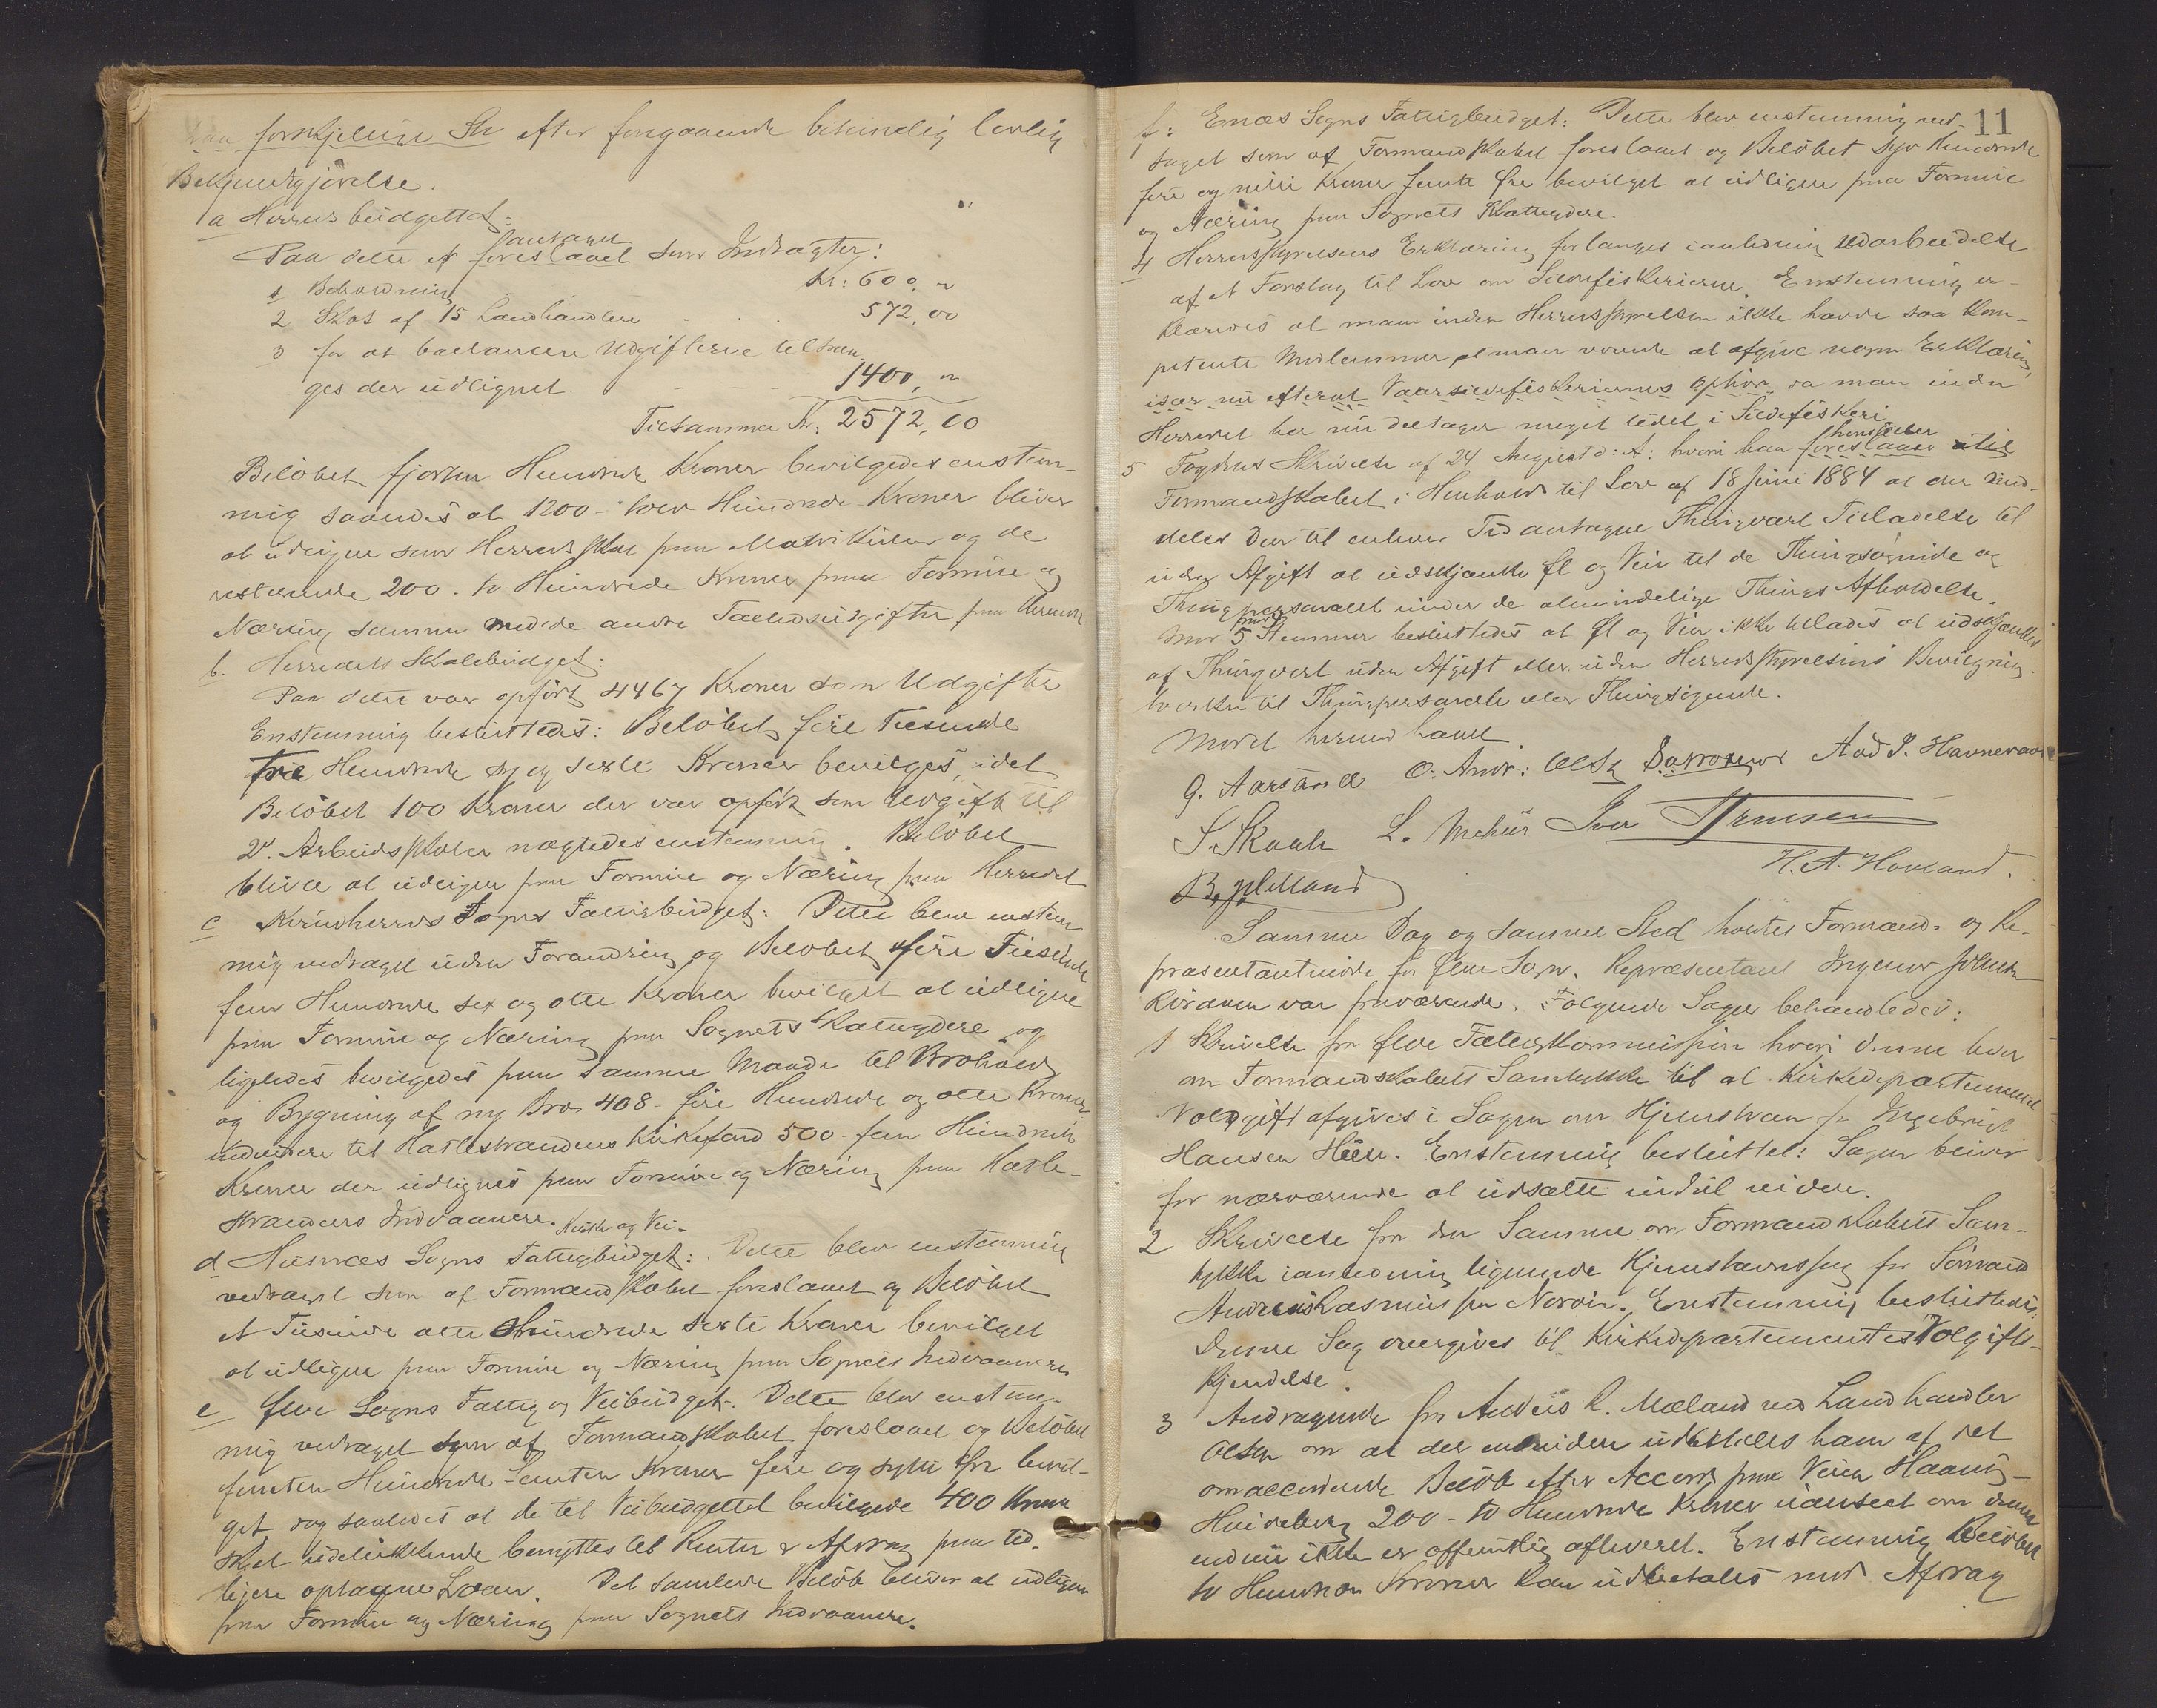 paa forskjelige St. efter forgaaende behøvelig lovlig
Bekjendtgjørelse.
a Herredsbudgettet:
Paa dette er foreslaaet antaget som Indtægter:
1 Beholdning Kr: 600, "
2 Skat af 15 Landhandlere . . . 572,00
3 for at ballancere Udgifterne tiltræn-
ges der udlignet - - - 1400, "
Tilsammen Kr. 2572,00
Beløbet fjorten Hundrede Kroner bevilgedes enstem-
mig saaledes at 1200 - tolv Hundrede Kroner bliver
at udligne som Herredsskat paa Matrikulen og de
resterende 200. to Hundrede Kroner paa Formue og
Næring sammen med de andre Fællesudgifter paa Herredet
b. Herredets Skolebudget:
Paa dette var opført 4467 Kroner som Udgifter
Enstemmig besluttedes: Beløbet fire Tusinde
fire Hundrede syv og sexti Kroner bevilges, idet
Beløbet 100 Kroner der var opført som Udgift til
2de Arbeidsskoler nægtedes enstemmig. Beløbet
bliver at udligne paa Formue og Næring paa Herredet
c Kvindherreds Sogns Fattigbudget: Dette blev enstem-
mig vedtaget uden Forandring og Beløbet fire Tusinde
fem Hundrede sex og otte Kroner bevilget at udligne
paa Formue og Næring paa Sognets Skatteydere og
ligeledes bevilgedes paa samme Maade til Brohold
og Bygning af ny Bro 408 - fire Hundrede og otte Kroner
videre til Hatlestrandens Kirkefond 500 - fem Hundrede
Kroner der udlignes paa Formue og Næring paa Hatle-
strandens Indvaanere.
d Husnæs Sogns Fattigbudget: Kirke og Vei- Dette blev enstemmig
vedtaget som af Formandskabet foreslaaet og Beløbet
et Tusinde otte Hundrede sexti Kroner bevilget
at udligne paa Formue og Næring paa Sognets Indvaanere
e Ølve Sogns Fattig og Veibudget: Dette blev enstem-
mig vedtaget som af Formandskabet foreslaaet og Beløbet
femten Hundrede femten Kroner fire og sytti Øre bevil-
get dog saaledes at de til Veibudgettet bevilgede 400 Kroner
skal udelukkende benyttes til Renter & Afdrag paa tid-
ligere optagne Laan. Det samlede Beløb bliver at udligne
paa Formue og Næring paa Sognets Indvaanere.
11
f: Enæs Sogns Fattigbudget: Dette blev enstemmig ved-
taget som af Formandskabet foreslaaet og Beløbet Syv Hundrede
fire og nitti Kroner femti Øre bevilget at udligne paa Formue
og Næring paa Sognets Skatteydere.
4 Herredsstyrelsens Erklæring forlanges i anledning Udarbeidelse
af et Forslag til Lov om Sildefiskerierne. Enstemmig er-
klæredes at man inden Herredsstyrelsen ikke havde saa kom-
petente Medlemmer at man vovede at afgive nogen Erklæring,
især nu efterat Vaarsildefiskeriernes Ophør, da man inden
Herredet her nu deltager meget lidet i Sildefiskeri
5 Fogdens Skrivelse af 24 August d: A: hvori han foreslaaer henstiller til
Formandskabet i Henhold til Lov af 18 Juni 1884 at der med-
deles den til enhver Tid antagne Thingvært Tilladelse til
uden Afgift at udskjænke Øl og Vin til de Thingsøgende og
Thingpersonalet under de almindelige Things Afholdelse.
Med mod 5 Stemmer besluttedes at Øl og Vin ikke tillades at udskjænkes
af Thingvert uden Afgift eller uden Herredsstyrelsens Bevilgning.
hverken til Thingpersonale eller Thingsøgende.
Mødet hermed hævet
G. Aarsand O. Andr: Olsen Aad P. Havneraas
S. Skaale L. Mehus Iver
H. A. Hovland.
B.
Samme Dag og samme Sted holdtes Formand- og Re-
præsentantmøde for Ølve Sogn. Repræsentant Ingemor Johnsen
var fraværende. Følgende Sager behandledes:
1 Skrivelse fra Ølve Fattigkommission hvori denne beder
om Formandskabets Samtykke til at Kirkedepartementets
Voldgift afgives i Sagen om Hjemstavn for Ingebrigt
Hansen Huse. Enstemmig besluttet: Sagen bliver
for nærværende at udsætte indtil videre.
2 Skrivelse fra den Samme om Formandskabets Sam-
tykke i anledning lignende Hjemstavnssag for Sømand
Andreas Rasmussen Nervik. Enstemmig besluttedes,
Denne Sag overgives til Kirkedepartementets Volgifts-
kjendelse.
3 Andragende fra Anders L. Mæland ved Landhandler
Olsen om at der endvidere udbetales ham af det
omaccorderede Beløb efter Accord paa Veien Haavig-
Hvideberg 200 - to Hundrede Kroner uanseet om denne
endnu ikke er offentlig afleveret. Enstemmig Beløbet
to Hundrede Kroner kan udbetales mod Afdrag